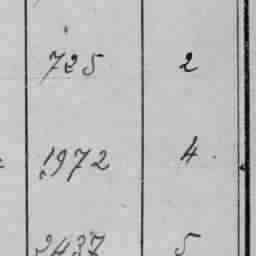 725 2
1972 4.
2437 5